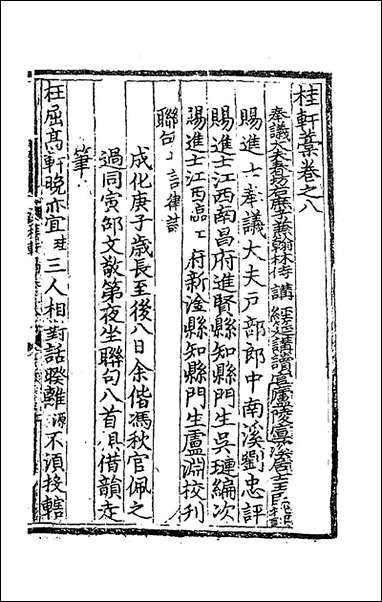 桂軒藁卷之八
奉議大夫春坊右庶子兼翰林侍講 經筵講讀官廬陵
賜進士奉議大夫戶部郎中南溪劉忠評
賜進士江西南昌府進賢縣知縣門生吳璉編次
賜進士江西臨江府新淦縣知縣門生盧淵校刊
聯句七言律詩
成化庚子歲長至後八日余偕馮秋官佩之
過同寅邵文敬第夜坐聯句八首俱借韻走
筆
枉屈高軒晚亦宜珪三人相對話暌離源不須投轄